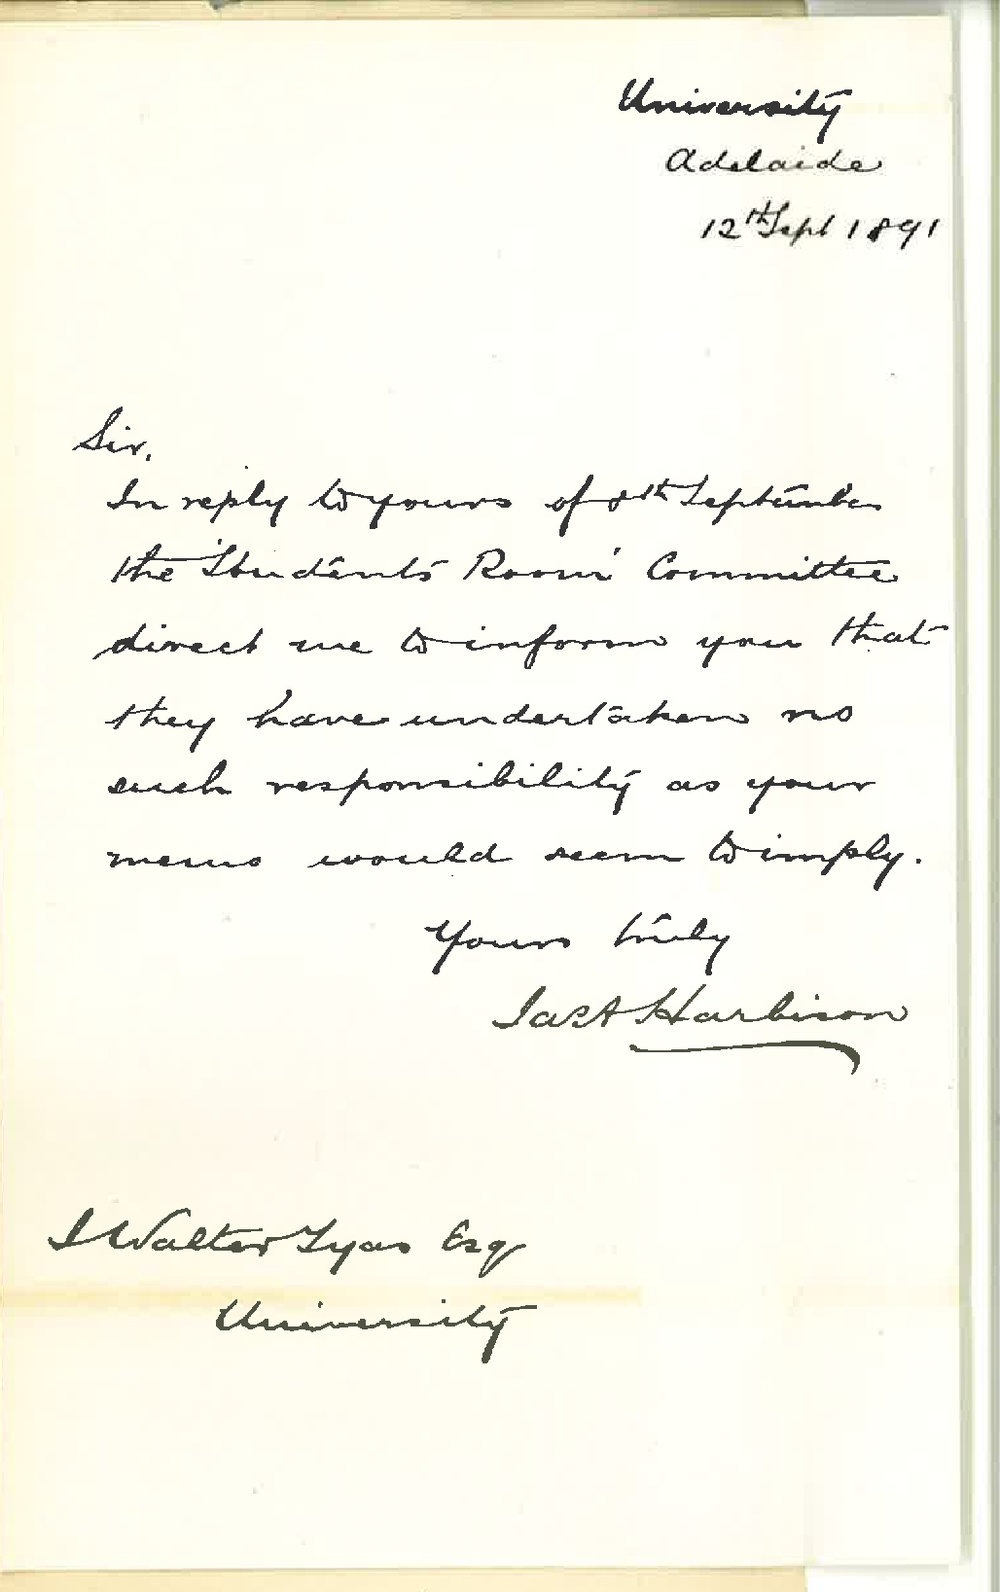 University
Adelaide
12th Sept 1891
Sir,
In reply to yours of 8th September
the Students' Room Committee
direct me to inform you that
they have undertaken no
such responsibility as your
memo would seem to imply.
Yours truly
Jas A Harbison
J Walter Tyas Esq
University